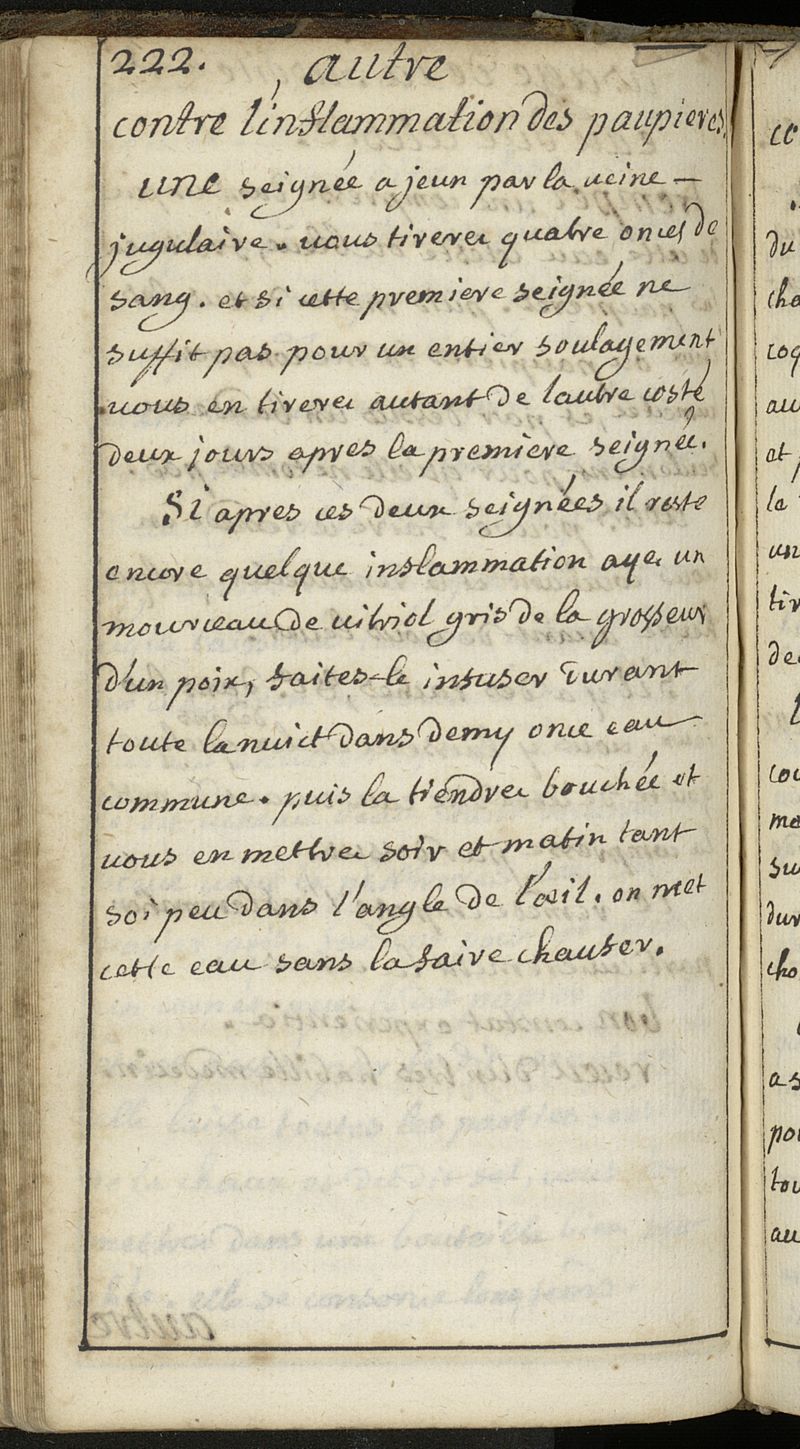 222. autre
contre l'inflammation des paupieres.
une seignée a jeun par la veine —
jugulaire. vous tirerez quatre onces de
sang. et si cette premiere seignée ne
suffit pas pour un entier soulagement
vous en tirerez autant de lautre costé
deux jours apres la premiere seignée.
Si apres ces deux seignées il reste
encore quelque inflammation ayez un
mourceau de vitriol gris de la grosseur
d'un poix, faites-le infuser durant
toute la nuict dans demy once eau
commune. puis la tiendrez bouchée et
vous en mettrez soir et matin tant
soi peu dans l'angle de l'œil. on met
cette eau sans la faire chaufer.